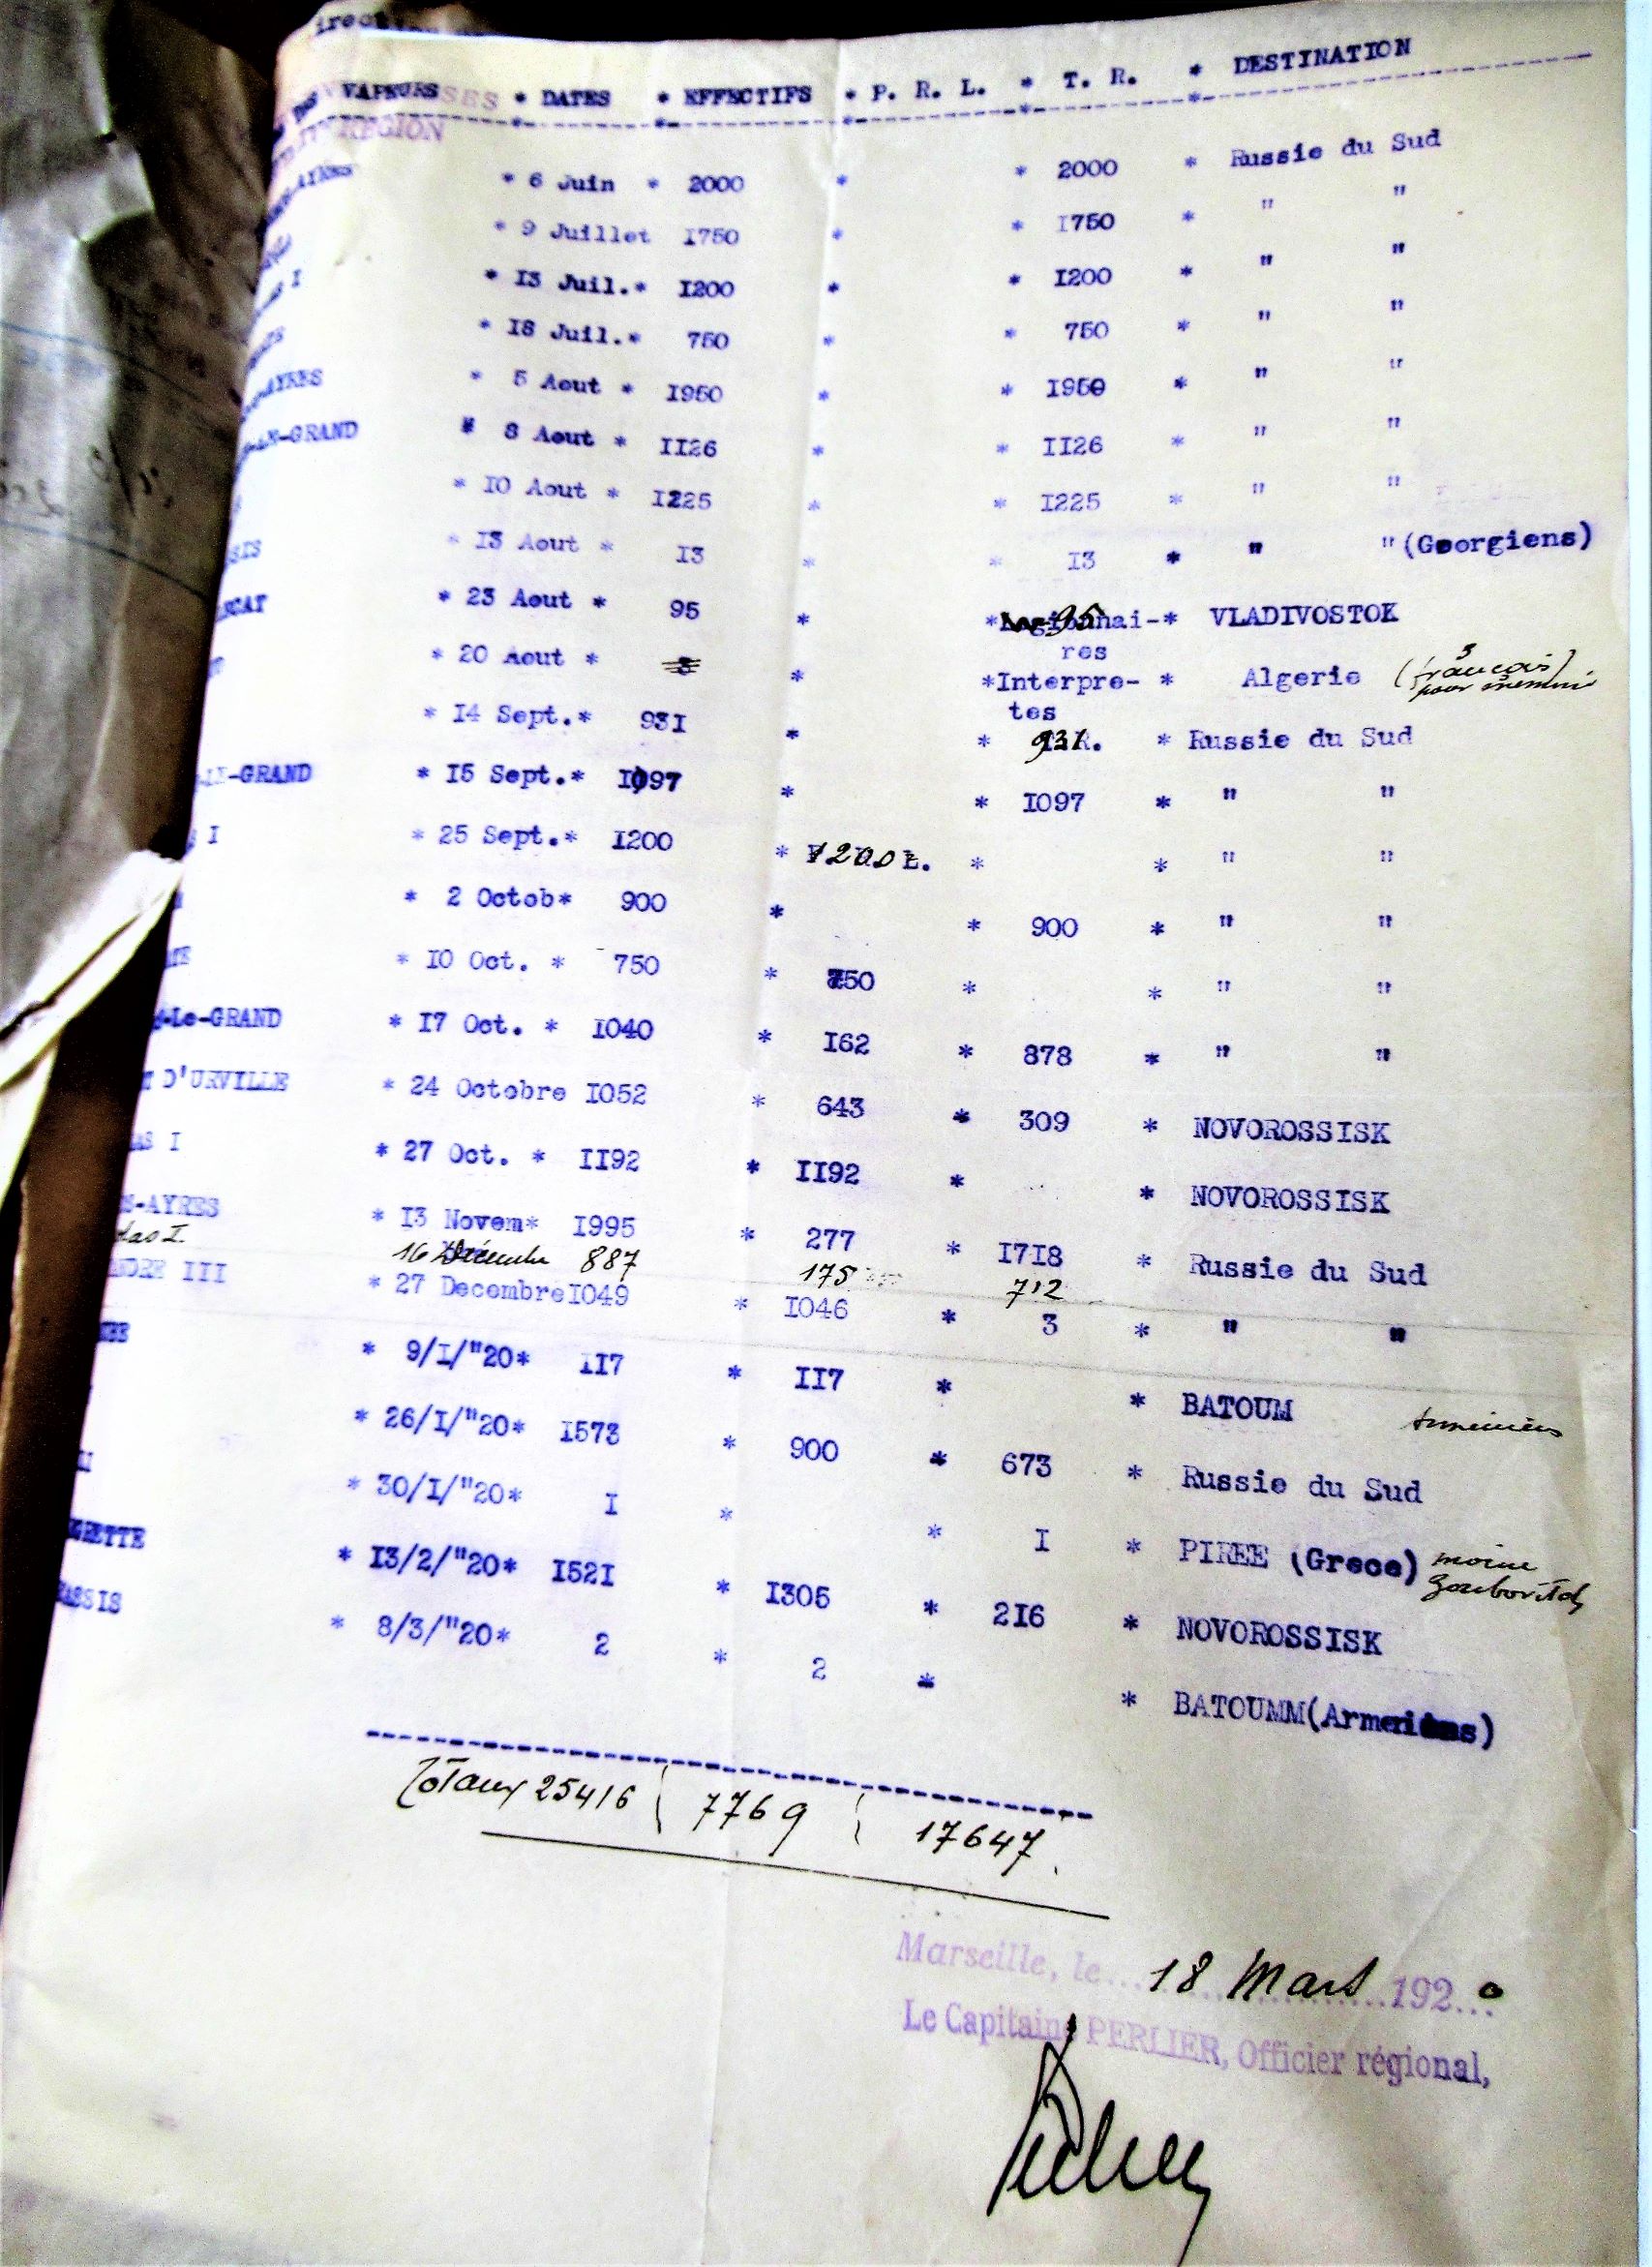 VAPEURS * DATES * EFFECTIFS * P. R. L. * T. R. * DESTINATION
REGION
* 6 Juin * 2000 * * 2000 * Russie du Sud
* 9 Juillet I750 * * I750 * " "
I * I3 Juil.* I200 * * I200 * " "
* I8 Juil.* 750 * * 750 * " "
AYRES * 5 Aout * I950 * * I950 * " "
-GRAND * 8 Aout * II26 * * II26 * " "
* I0 Aout * I225 * * I225 * " "
* I3 Aout * I3 * * I3 * " " (Georgiens)
* 23 Aout * 95 * * 95 -* VLADIVOSTOK
res
* 20 Aout * 3 * *Interpre- * Algerie (3 français pour mémoire)
tes
* I4 Sept.* 93I * * 931 * Russie du Sud
-GRAND * I5 Sept.* I097 * * I097 * " "
I * 25 Sept.* I200 * 1200 * * " "
* 2 Octob* 900 * * 900 * " "
* I0 Oct. * 750 * 750 * * " "
-Le-GRAND * I7 Oct. * I040 * I62 * 878 * " "
D'URVILLE * 24 Octobre I052 * 643 * 309 * NOVOROSSISK
I * 27 Oct. * II92 * II92 * * NOVOROSSISK
-AYRES * I3 Novem* I995 * 277 * I7I8 * Russie du Sud
las I. 16 Décembre 887 175 712
III * 27 Decembre I049 * I046 * 3 * " "
* 9/I/"20* II7 * II7 * * BATOUM Armeniens
* 26/I/"20* I573 * 900 * 673 * Russie du Sud
* 30/I/"20* I * * I * PIREE (Grece) moine
* I3/2/"20* I52I * I305 * 2I6 * NOVOROSSISK
* 8/3/"20* 2 * 2 * * BATOUMM(Armeniens)
Totaux 25416 7769 17647.
Marseille, le... 18 Mars ...192...0
Le Capitaine PERLIER, Officier régional,